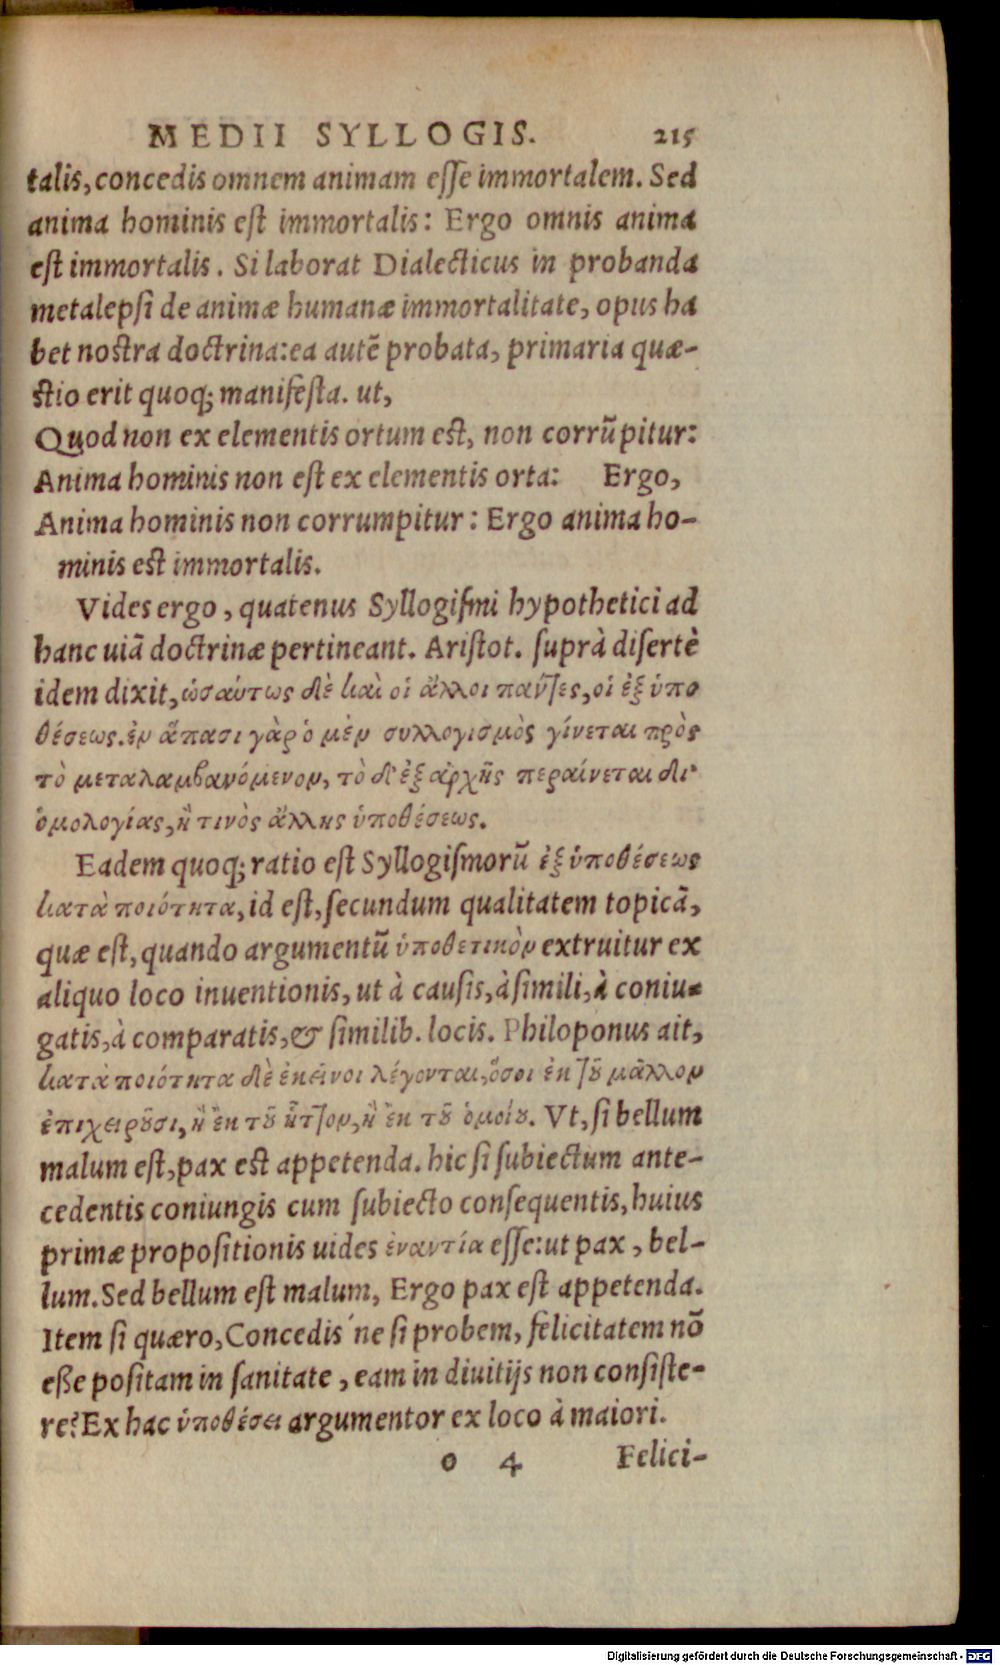 MEDII SYLLOGIS. 215
talis, concedis omnem animam esse immortalem. Sed
anima hominis est immortalis: Ergo omnis anima
est immortalis. Si laborat Dialecticus in probanda
metalepsi de animæ humanæ immortalitate, opus ha
bet nostra doctrina: ea autē probata, primaria quæ-
stio erit quoq; manifesta. ut,
Quod non ex elementis ortum est, non corrūpitur:
Anima hominis non est ex elementis orta: Ergo,
Anima hominis non corrumpitur: Ergo anima ho-
minis est immortalis.
Vides ergo, quatenus Syllogismi hypothetici ad
hanc uiā doctrinæ pertineant. Aristot. suprà disertè
idem dixit, ὡσαύτως δὲ καὶ οἱ ἄλλοι πάντες, οἱ ἐξ ὑπο
θέσεως. ἐν ἅπασι γὰρ ὁ μὲν συλλογισμὸς γίνεται πρὸς
τὸ μεταλαμβανόμενον, τὸ δ' ἐξ αρχῆς περαίνεται δι'
ὁμολογίας, ἤ τινὸς ἄλλης ὑποθέσεως.
Eadem quoq; ratio est Syllogismorū ἐξ ὑποθέσεως
κατὰ ποιότητα, id est, secundum qualitatem topicā,
quæ est, quando argumentū ὑποθετικὸν extruitur ex
aliquo loco inuentionis, ut à causis, à simili, à coniu-
gatis, à comparatis, & similib. locis. Philoponus ait,
κατὰ ποιότητα δὲ ἐκεῖνοι λέγονται, ὅσοι ἐκ τοῦ μᾶλλον
ἐπιχειροῦσι, ἢ ἐκ τοῦ ἧττον, ἢ ἐκ τοῦ ὁμοίου. Vt, si bellum
malum est, pax est appetenda. hic si subiectum ante-
cedentis coniungis cum subiecto consequentis, huius
primæ propositionis uides ἐναντία esse: ut pax, bel-
lum. Sed bellum est malum, Ergo pax est appetenda.
Item si quæro, Concedis'ne si probem, felicitatem nō
eße positam in sanitate, eam in diuitijs non consiste-
re? Ex hac ὑποθέσει argumentor ex loco à maiori.
o 4 Felici-
Digitalisierung gefördert durch die Deutsche Forschungsgemeinschaft - DFG